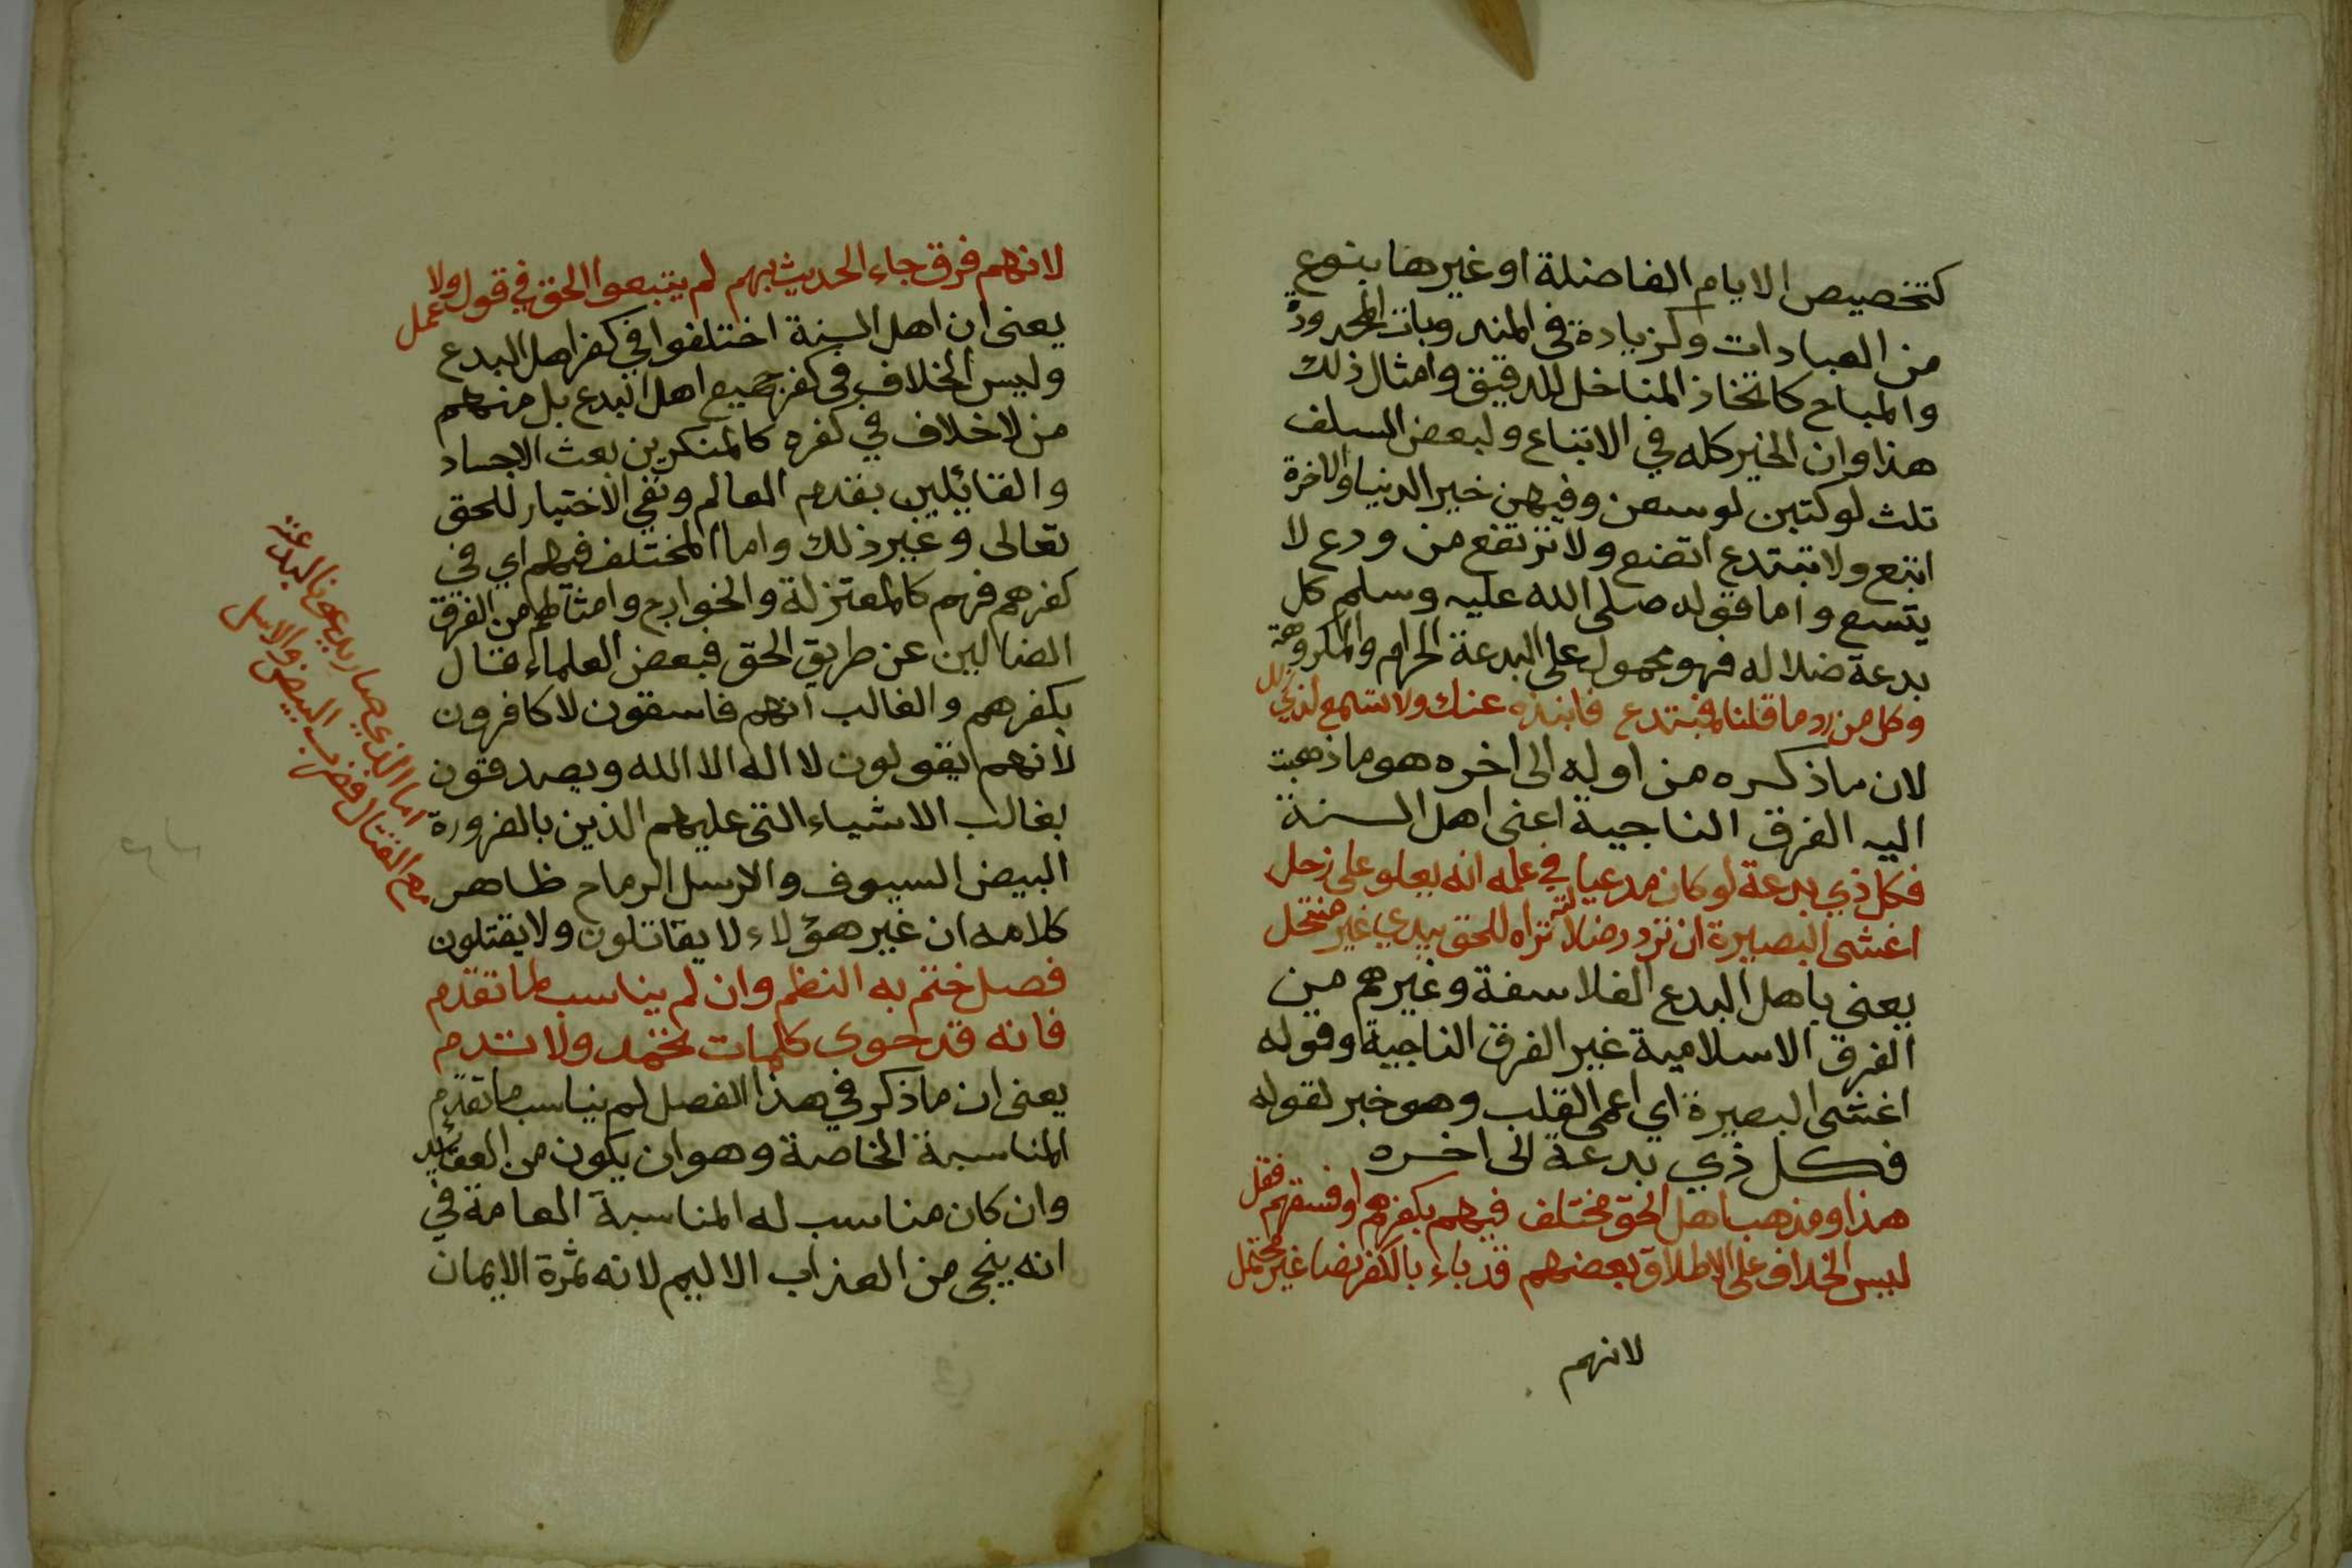 كتخصيص الايام الفاضلة او غيرها بنوع
من العبادات وكزيادة في المندوبات المحدودة
والمباح كاتخاذ المناخل للدقيق وامثال ذلك
هذا وان الخير كله في الاتباع ولبعض السلف
ثلث لو كتبن لوسعن وفيهن خير الدنيا والاخرة
اتبع ولا تبتدع اتضع ولا ترتفع من ودع لا
يتسع واما قوله صلى الله عليه وسلم كل
بدعة ضلاله فهو محمول على البدعة الحرام والمكروهة
وكل من رد ما قلنا فمبتدع فانبذه عنك ولا تسمع لذي
لان ما ذكره من اوله الى اخره هو ما ذهبت
اليه الفرق الناجية اعنى اهل السنة
فكل ذي بدعة لو كان مدعيا في علمه انه يعلو على زحل
اغشى البصيرة ان تردد ضلالته تراه للحق يبدي غير منتحل
يعني باهل البدع الفلاسفة وغيرهم من
الفرق الاسلامية غير الفرق الناجية وقوله
اغشى البصيرة اي اعمى القلب وهو خبر لقوله
فكل ذي بدعة الى اخره
هذا ومذهب اهل الحق مختلف فيهم بكفرهم او فسقهم فقل
ليس الخلاف على الاطلاق بعضهم قد باء بالكفر نصا غير محتمل
لانهم
لانهم فرق جاء الحديث بهم لم يتبعوا الحق في قول ولا عمل
يعنى ان اهل السنة اختلفوا في كفر اهل البدع
وليس الخلاف في كفر جميع اهل البدع بل منهم
من لا خلاف في كفره كالمنكرين بعث الاجساد
والقائلين بقدم العالم ونفي الاختيار للحق
تعالى وغير ذلك واما المختلف فيهم اي في
كفرهم فهم كالمعتزلة والخوارج وامثالهم من الفرق
الضالين عن طريق الحق فبعض العلماء قال
بكفرهم والغالب انهم فاسقون لا كافرون
لانهم يقولون لا اله الا الله ويصدقون
بغالب الاشياء التى عليهم الذين بالضرورة
اما الذي صار يدعونا لبدعته
منهم القتال فضرب البيض والاسل
البيض السيوف والاسل الرماح ظاهر
كلامه ان غير هؤلاء لا يقاتلون ولا يقتلون
فصل ختم به النظم وان لم يناسب لما تقدم
فانه قد حوى كلمات تحمد ولا تندم
يعنى ان ما ذكر في هذا الفصل لم يناسب ما تقدم
المناسبة الخاصة وهو ان يكون من العقائد
وان كان مناسب له المناسبة العامة في
انه ينجى من العذاب الاليم لانه ثمرة الايمان